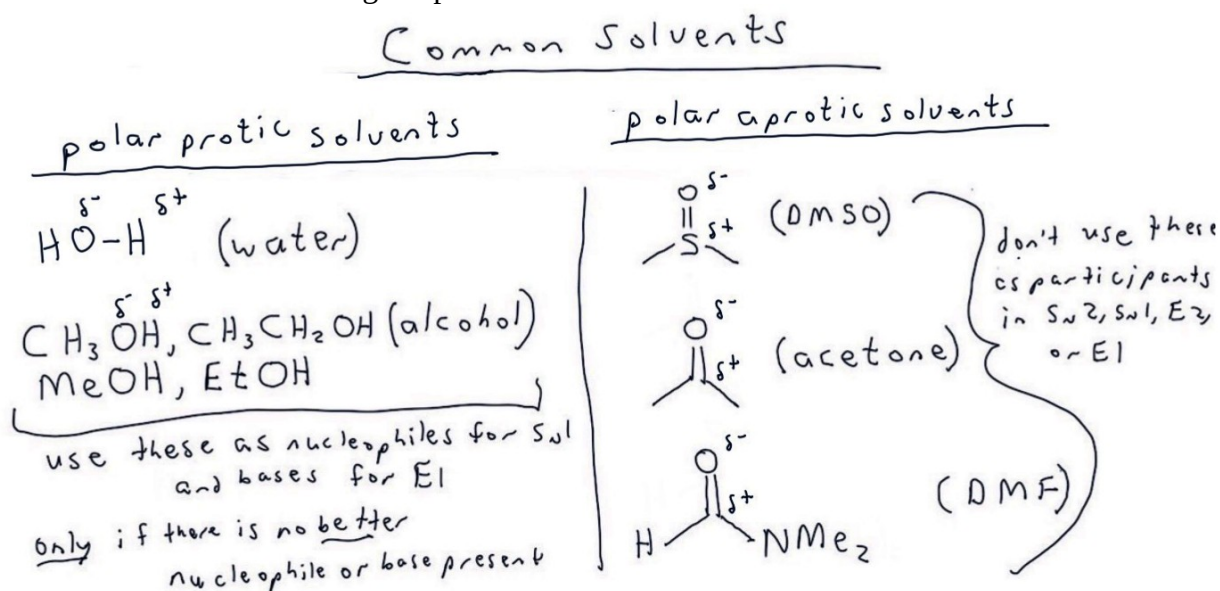 Common Solvents
polar protic solvents
δ- δ+
HO-H (water)
δ- δ+
CH3OH, CH3CH2OH (alcohol)
MeOH, EtOH
use these as nucleophiles for SN1
and bases for E1
only if there is no better
nucleophile or base present
polar aprotic solvents
O δ-
S δ+ (DMSO)
O δ-
δ+ (acetone)
O δ-
δ+ (DMF)
H NMe2
don't use these
as participants
in SN2, SN1, E2,
or E1